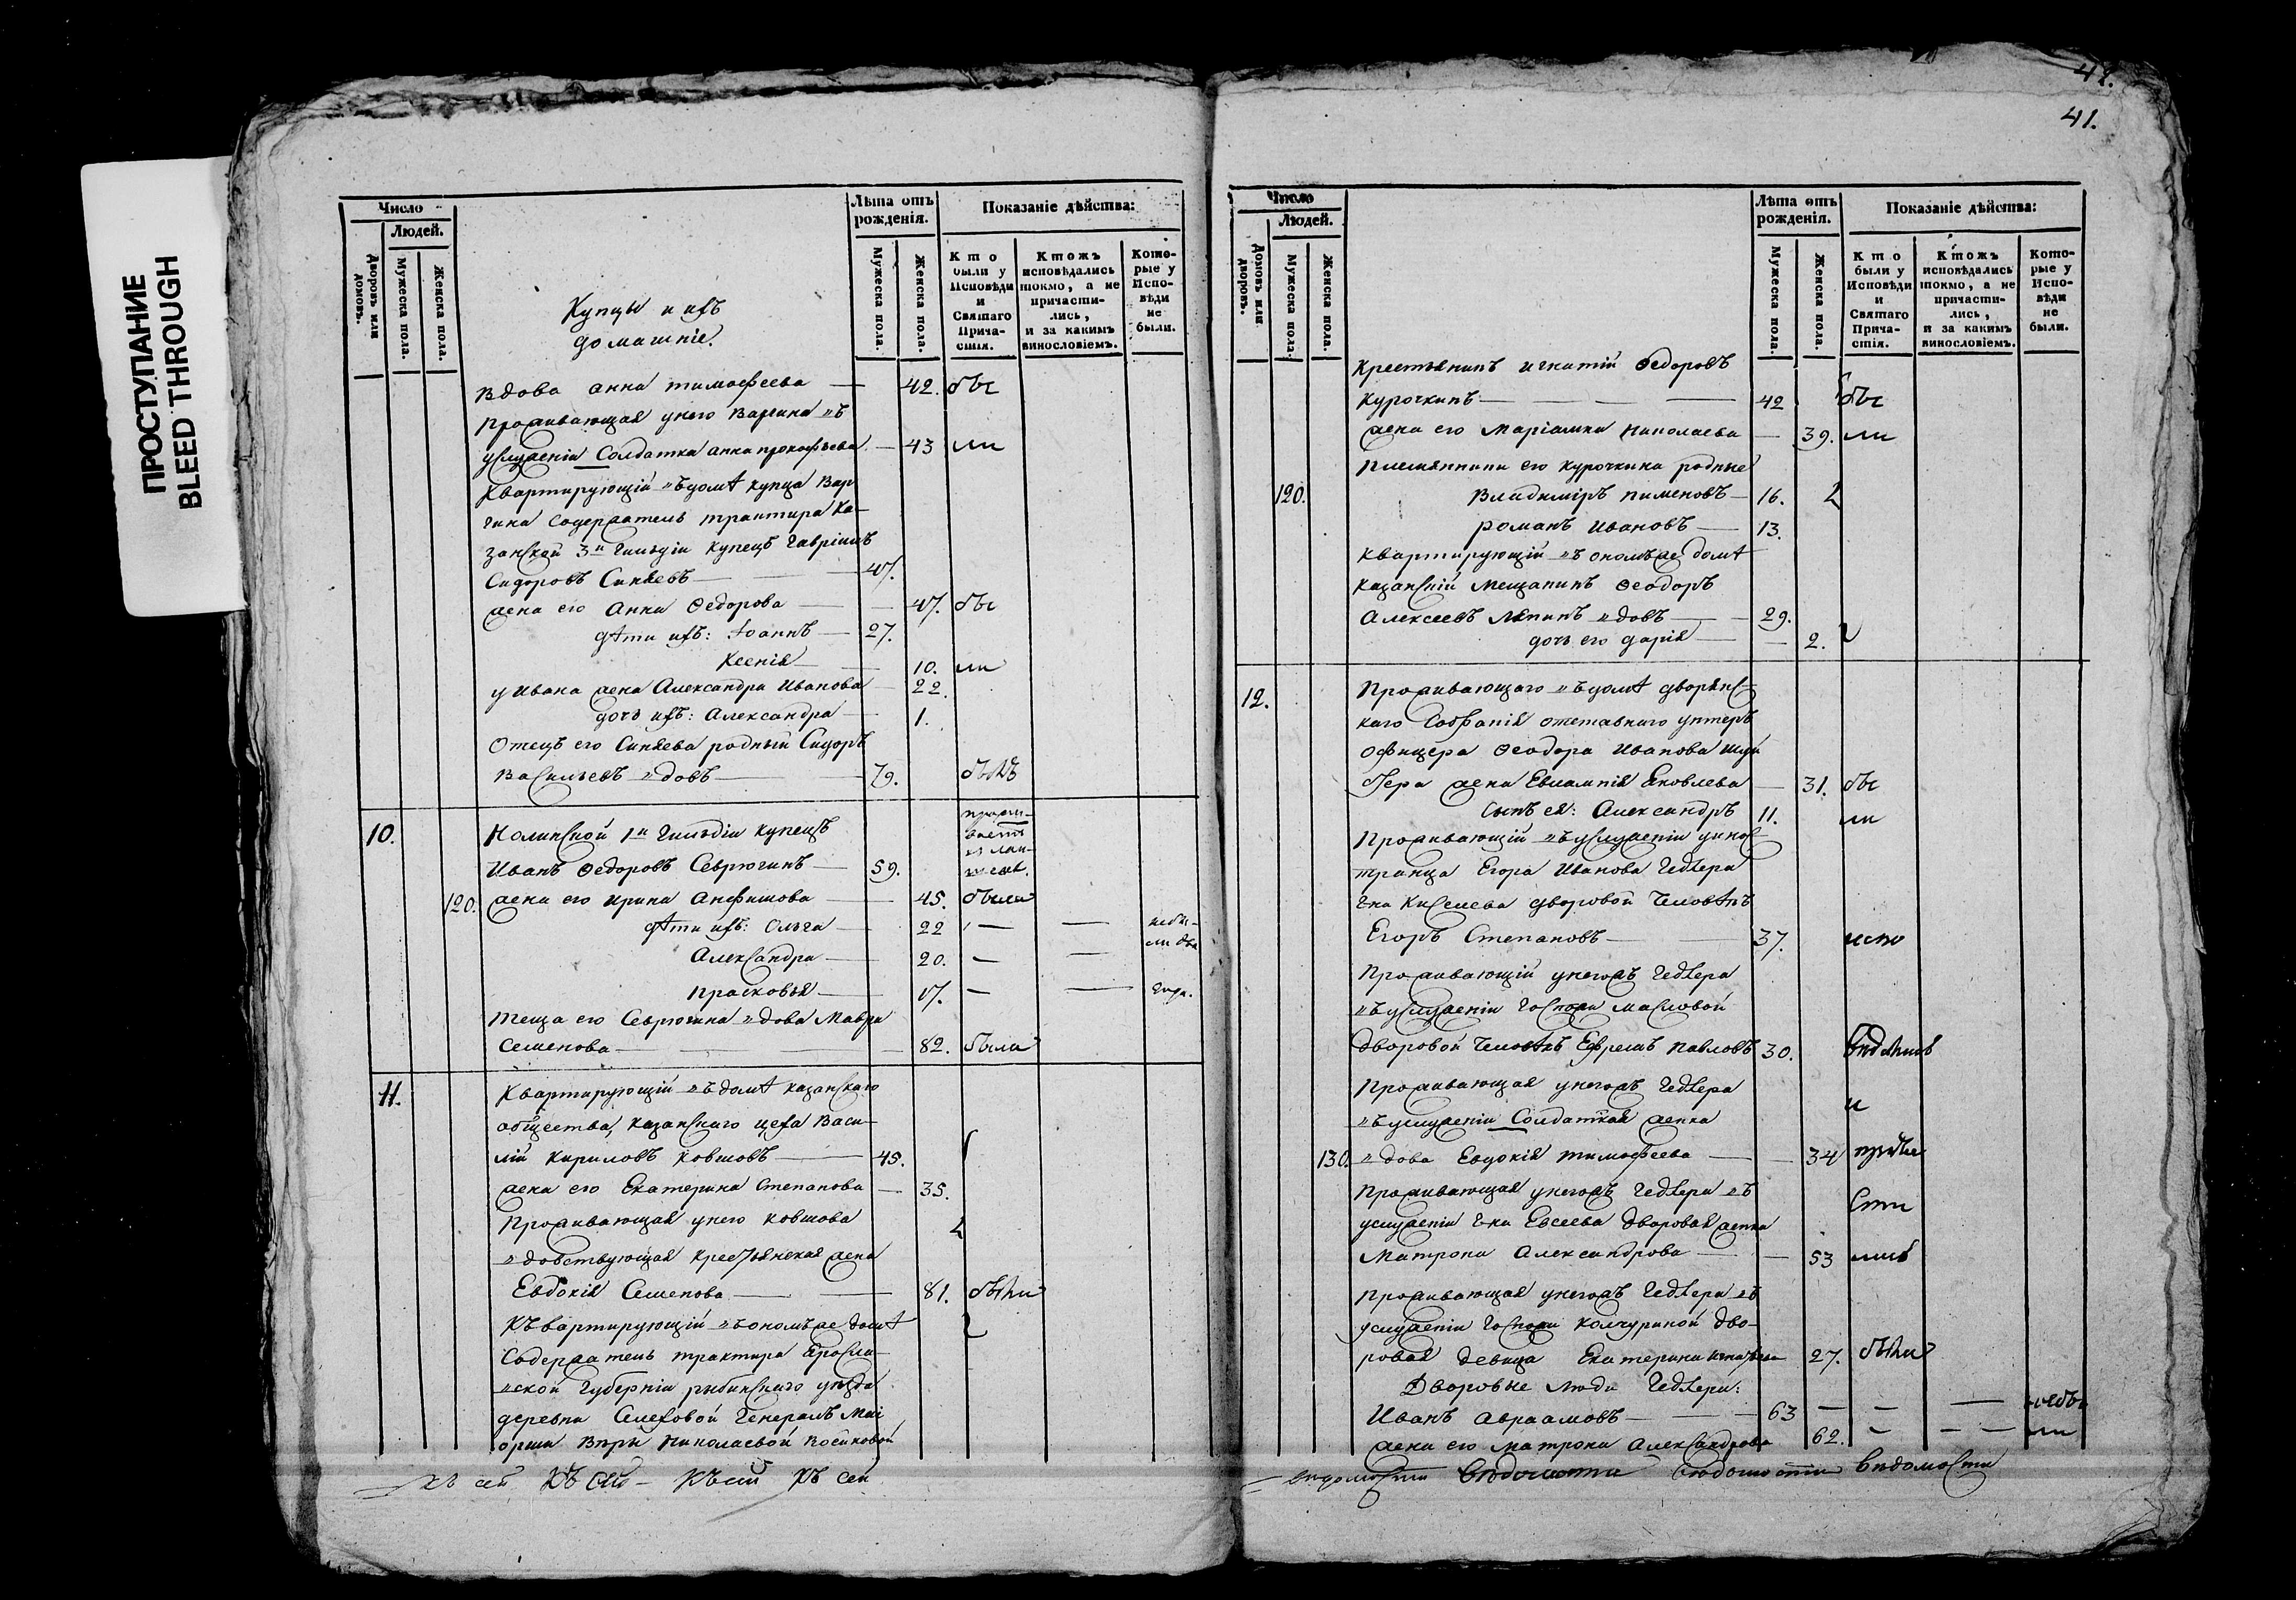 ПРОСТУПАНИЕ
BLEED THROUGH
Число
Людей.
Дворовъ или домовъ.
Мужеска пола.
Женска пола.
Купцы и ихъ
домашніе.
Лѣта отъ рожденія.
Мужеска пола.
Женска пола.
Показаніе дѣйства:
Кто были у Исповѣди и Святаго Прича-стія.
Ктожъ исповѣдались токмо, а не причасти-лись, и за какимъ винословіемъ.
Кото-рые у Испо-вѣди не были.
Вдова Анна Тимофеева — 42. бы
Проживающая унего Варгина въ
услуженіи Солдатка Анна Прокофьева — 43 ли
Квартирующій въ домѣ купца Вар
гина Содержатель трактира Ка-
занской 3й Гильдіи Купецъ Гавріилъ
Сидоровъ Синяевъ — 47.
жена его Анна Федорова — 47. бы
дѣти ихъ: Іоаннъ — 27.
Ксенія — 10. ли
у Ивана жена Александра Иванова 22.
дочь ихъ: Александра — 1.
Отецъ его Синяева родный Сидоръ
Васильевъ вдовъ — 79. былъ
10. 1й Гильдіи Купецъ
Иванъ Федоровъ Севрюгинъ — 59.
120. жена его Ирина Анфимова — 45. была
дѣти ихъ: Ольга — 22 — — небы-
Александра — 20. — — ли два
Прасковья — 17. — — года.
Теща его Севрюгина вдова Мавра
Семенова — 82. была
11. Квартирующій въ домѣ Казанскаго
общества, Казанскаго цеха Васи-
лій Кириловъ Ковшовъ — 45.
жена его Екатерина Степанова — 35.
Проживающая унего Ковшова
вдовствующая крестьянская жена
Евдокія Семенова — 81. были
Квартирующій въ ономъже домѣ
Содержатель трактира Яросла-
вской Губерніи рыбинскаго уѣзда
деревни Генералъ Маі
орши Вѣры Николаевой
къ сей къ сей — къ сей къ сей
41.
41.
Число
Людей.
Домовъ или дворовъ.
Мужеска пола.
Женска пола.
Лѣта отъ рожденія.
Мужеска пола.
Женска пола.
Показаніе дѣйства:
Кто были у Исповѣди и Святаго Прича-стія.
Ктожъ исповѣдались токмо, а не причасти-лись, и за какимъ винословіемъ.
Кото-рые у Испо-вѣди не были.
Крестьянинъ Игнатій Федоровъ
Курочкинъ — 42 бы
жена его Маріамна Николаева — 39. ли
Племянники его Курочкина родные
120. Владиміръ Пименовъ — 16.
Романъ Ивановъ — 13.
Квартирующій въ ономъже домѣ
Казанскій Мещанинъ Феодоръ
Алексеевъ Ляпинъ вдовъ — 29.
дочь его Дарія — 2.
12. Проживающаго въ домѣ дворянс-
каго Собранія отставнаго унтеръ
Офицера Феодора Иванова
жена Евлампія Яковлева — 31. бы
Сынъ ея: Александръ 11. ли
Проживающій въ услуженіи у инос-
транца Егора Иванова
Г-на Киселева дворовой человѣкъ
Егоръ Степановъ — 37. испо
Проживающій унегожъ
въ услуженіи Госпожи Масловой
дворовой человѣкъ Ефремъ Павловъ 30.
Проживающая унегожъ
въ услуженіи Солдатская женка и
130. вдова Евдокія Тимофеева — 34
Проживающая унегожъ въ
услуженіи Г-на Евсеева дворовая женка
Матрона Александрова — 53
Проживающая унегожъ въ
услуженіи Госпожи Колчуриной дво-
ровая девица Екатерина Игнатьева 27. были
Дворовые люди
Иванъ Авраамовъ — 63 — — — небы
жена его Матрона Александрова 62. — — — ли
ведомости ведомости ведомости ведомости